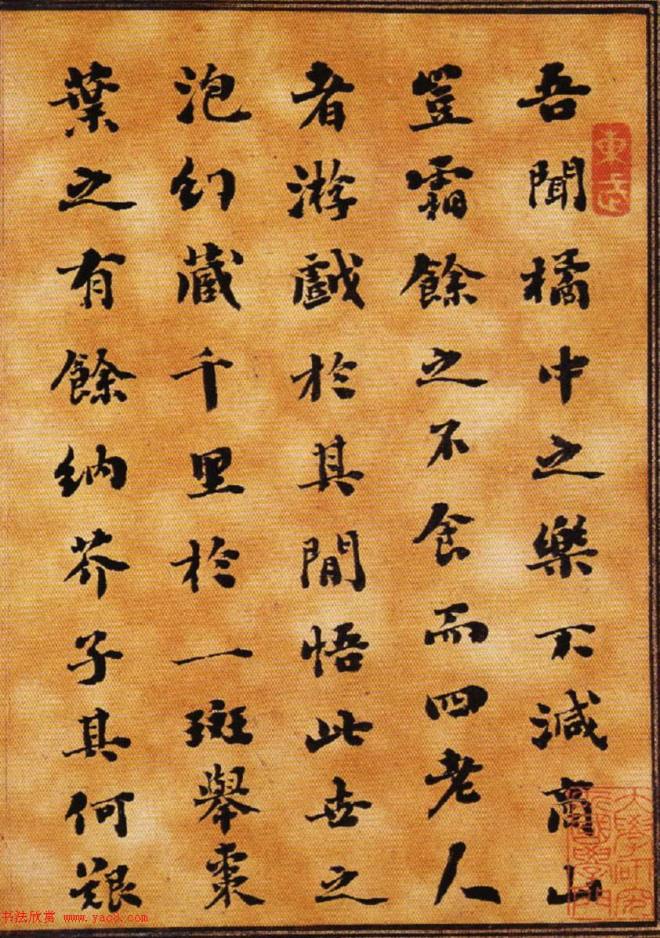 吾聞橘中之樂不減商山
豈霜餘之不食而四老人
者游戲於其閒悟此世之
泡幻藏千里於一斑舉棗
葉之有餘納芥子其何艱
東武
书法欣赏 www.yac8.com